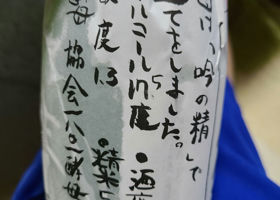 は、吟の精」で
てをしました。
ルコール15度 ・酒
度 1.3 ・精米
母 協会一八〇一酵母